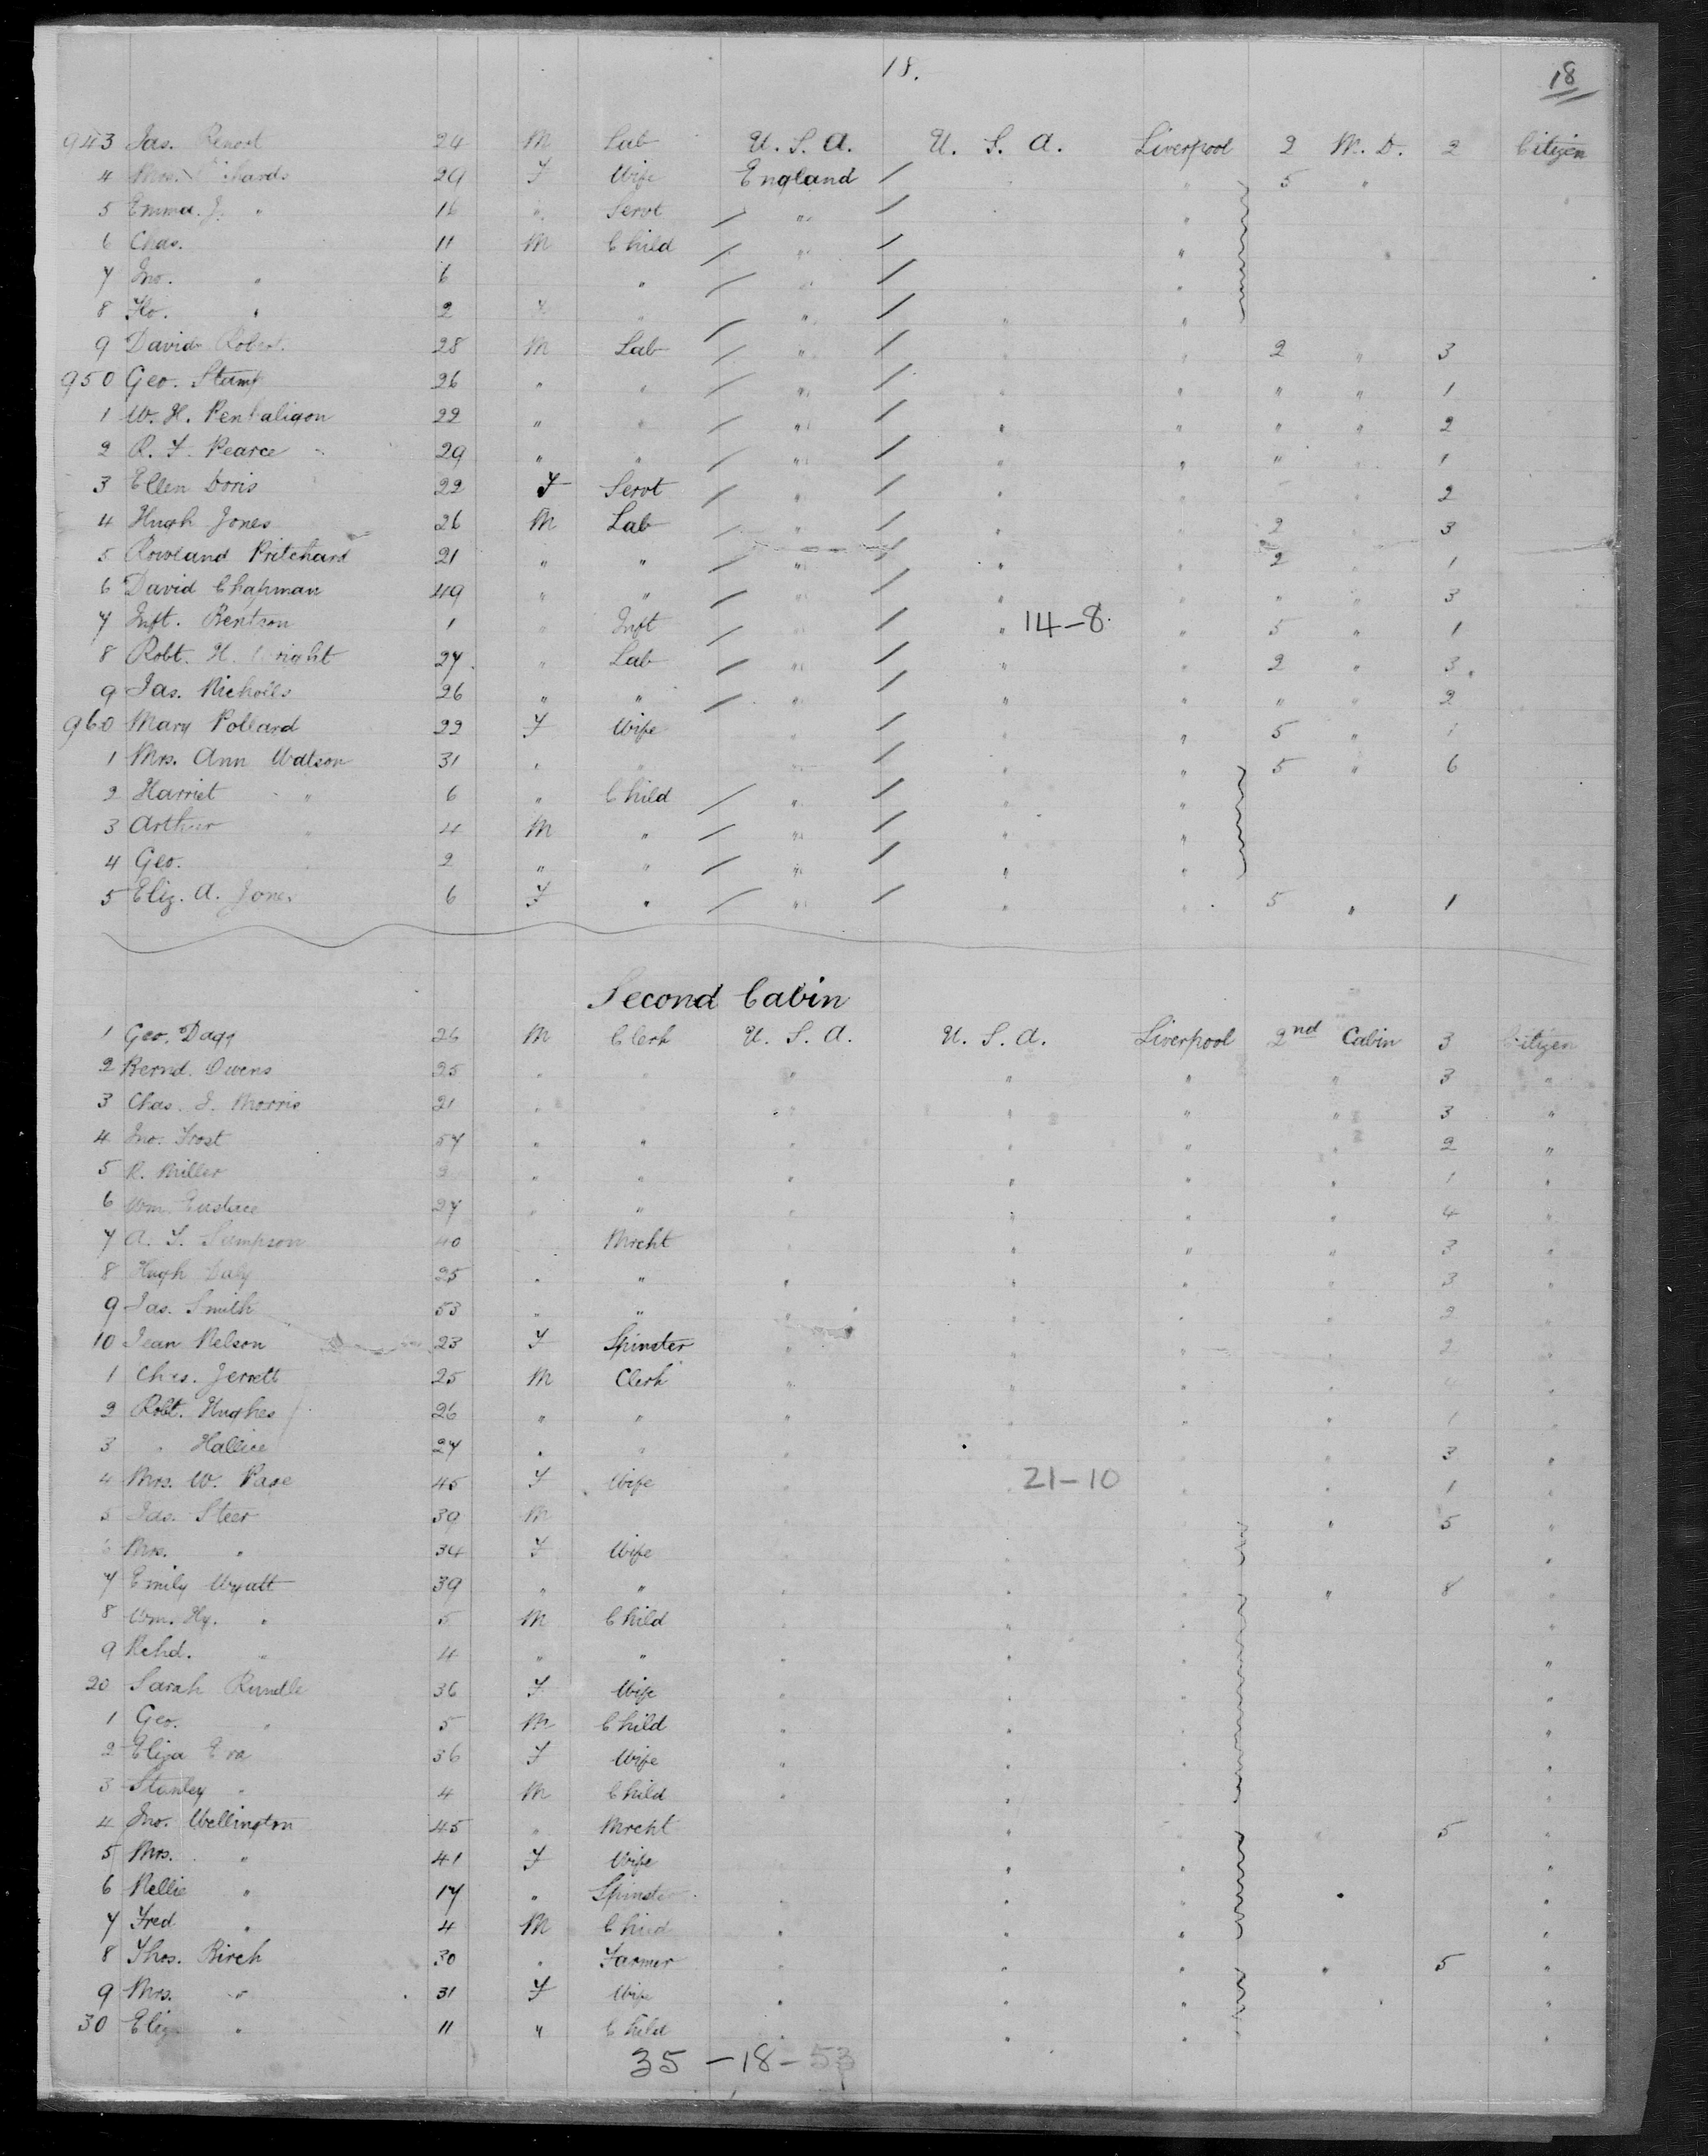 18. 18
943 Jas. 24 M Lab U. S. A. U. S. A. Liverpool 2 M. D. 2 Citizen
4 Mrs. 29 F Wife England / " 5 "
5 Emma. J. " 16 " Servt / " / "
6 Chas. 11 M Child / " / "
7 Jno. " 6 " / " / "
8 Flo. " 2 F " / " / " "
9 David 28 M Lab / " / " 2 " 3
950 Geo. Stump 26 " " / " / " " " 1
1 W. H. Penhaligon 22 " " / " / " " " " 2
2 R. F. Pearce 29 " " / " / " " " 1
3 Ellen Doris 22 F Servt / " / " 2
4 Hugh Jones 26 M Lab / " / " 2 3
5 Rowland Pritchard 21 " " / " / " " 2 " 1
6 David Chapman 49 " " / " / " " " " 3
7 Inft. Bentson 1 " Inft / " / " 14-8. " 5 " 1
8 Robt. H. Wright 27 " Lab / " / " " 2 " 3
9 Jas. Nicholls 26 " " / " / " " " " 2
960 Mary Pollard 22 F Wife " / " " 5 " 1
1 Mrs. Ann Watson 31 " " " / " " 5 " 6
2 Harriet " 6 " Child / " / " "
3 Arthur " 4 M " / " / " "
4 Geo. 2 " " / " / " "
5 Eliz. A. Jones 6 F " / " / " " 5 " 1
Second Cabin
1 Geo. Dagg 26 M Clerk U. S. A. U. S. A. Liverpool 2nd Cabin 3 Citizen
2 Bernd. Owens 25 " " " " " " 3 "
3 Chas. J. Morris 21 " " " " " 3 "
4 Jno. Frost 57 " " " " " " 2 "
5 R. Miller " " " " " " 1 "
6 Wm. Eustace 27 " " " " " " 4 "
7 A. S. Sampson 40 Mrcht " " " " 3 "
8 Hugh Daly 25 " " " " " " 3 "
9 Jas. Smith 53 " " " " " " 2 "
10 Jean Nelson 23 F Spinster " " " " 2 "
1 Chas. Jerrett 25 M Clerk " " " " 4 "
2 Robt. Hughes 26 " " " " " " 1 "
3 " 27 " " " " " " 3 "
4 Mrs. W. Page 45 F Wife " " 21-10 " " 1 "
5 Jas. Steer 39 M " " " " 5 "
6 Mrs. " 34 F Wife " " " "
7 Emily Wyatt 39 " " " " " " 8 "
8 Wm. Hy. " 5 M Child " " " "
9 Rchd. " 4 " " " " " "
20 Sarah Rundle 36 F Wife " " " "
1 Geo. " 5 M Child " " " "
2 Eliza Eva 36 F Wife " " " "
3 Stanley " 4 M Child " " "
4 Jno. Wellington 45 " Mrcht " " " 5 "
5 Mrs. " 41 F Wife " " "
6 Nellie " 17 " Spinster " " " " "
7 Fred " 4 M Child " " " "
8 Thos. Birch 30 " Farmer " " " " 5 "
9 Mrs. " 31 F Wife " " " " "
30 Eliz " 11 " Child " " " "
35 -18- 53